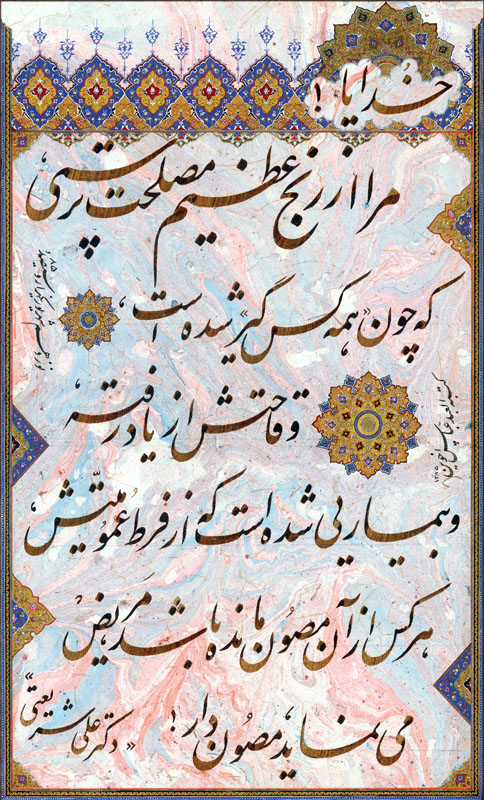 خدایا!
مرا از رنج عظیم مصلحت پرستی
که چون «همه کس گیر» شده است،
وقاحتش از یاد رفته
و بیماریی شده است که از فرط عمومیّتش،
هر کس از آن مصون مانده باشد مَریضْ
می نماید مصون دار!
«دکتر علی شریعتی»
کتبه العبد
۱۳۸۵